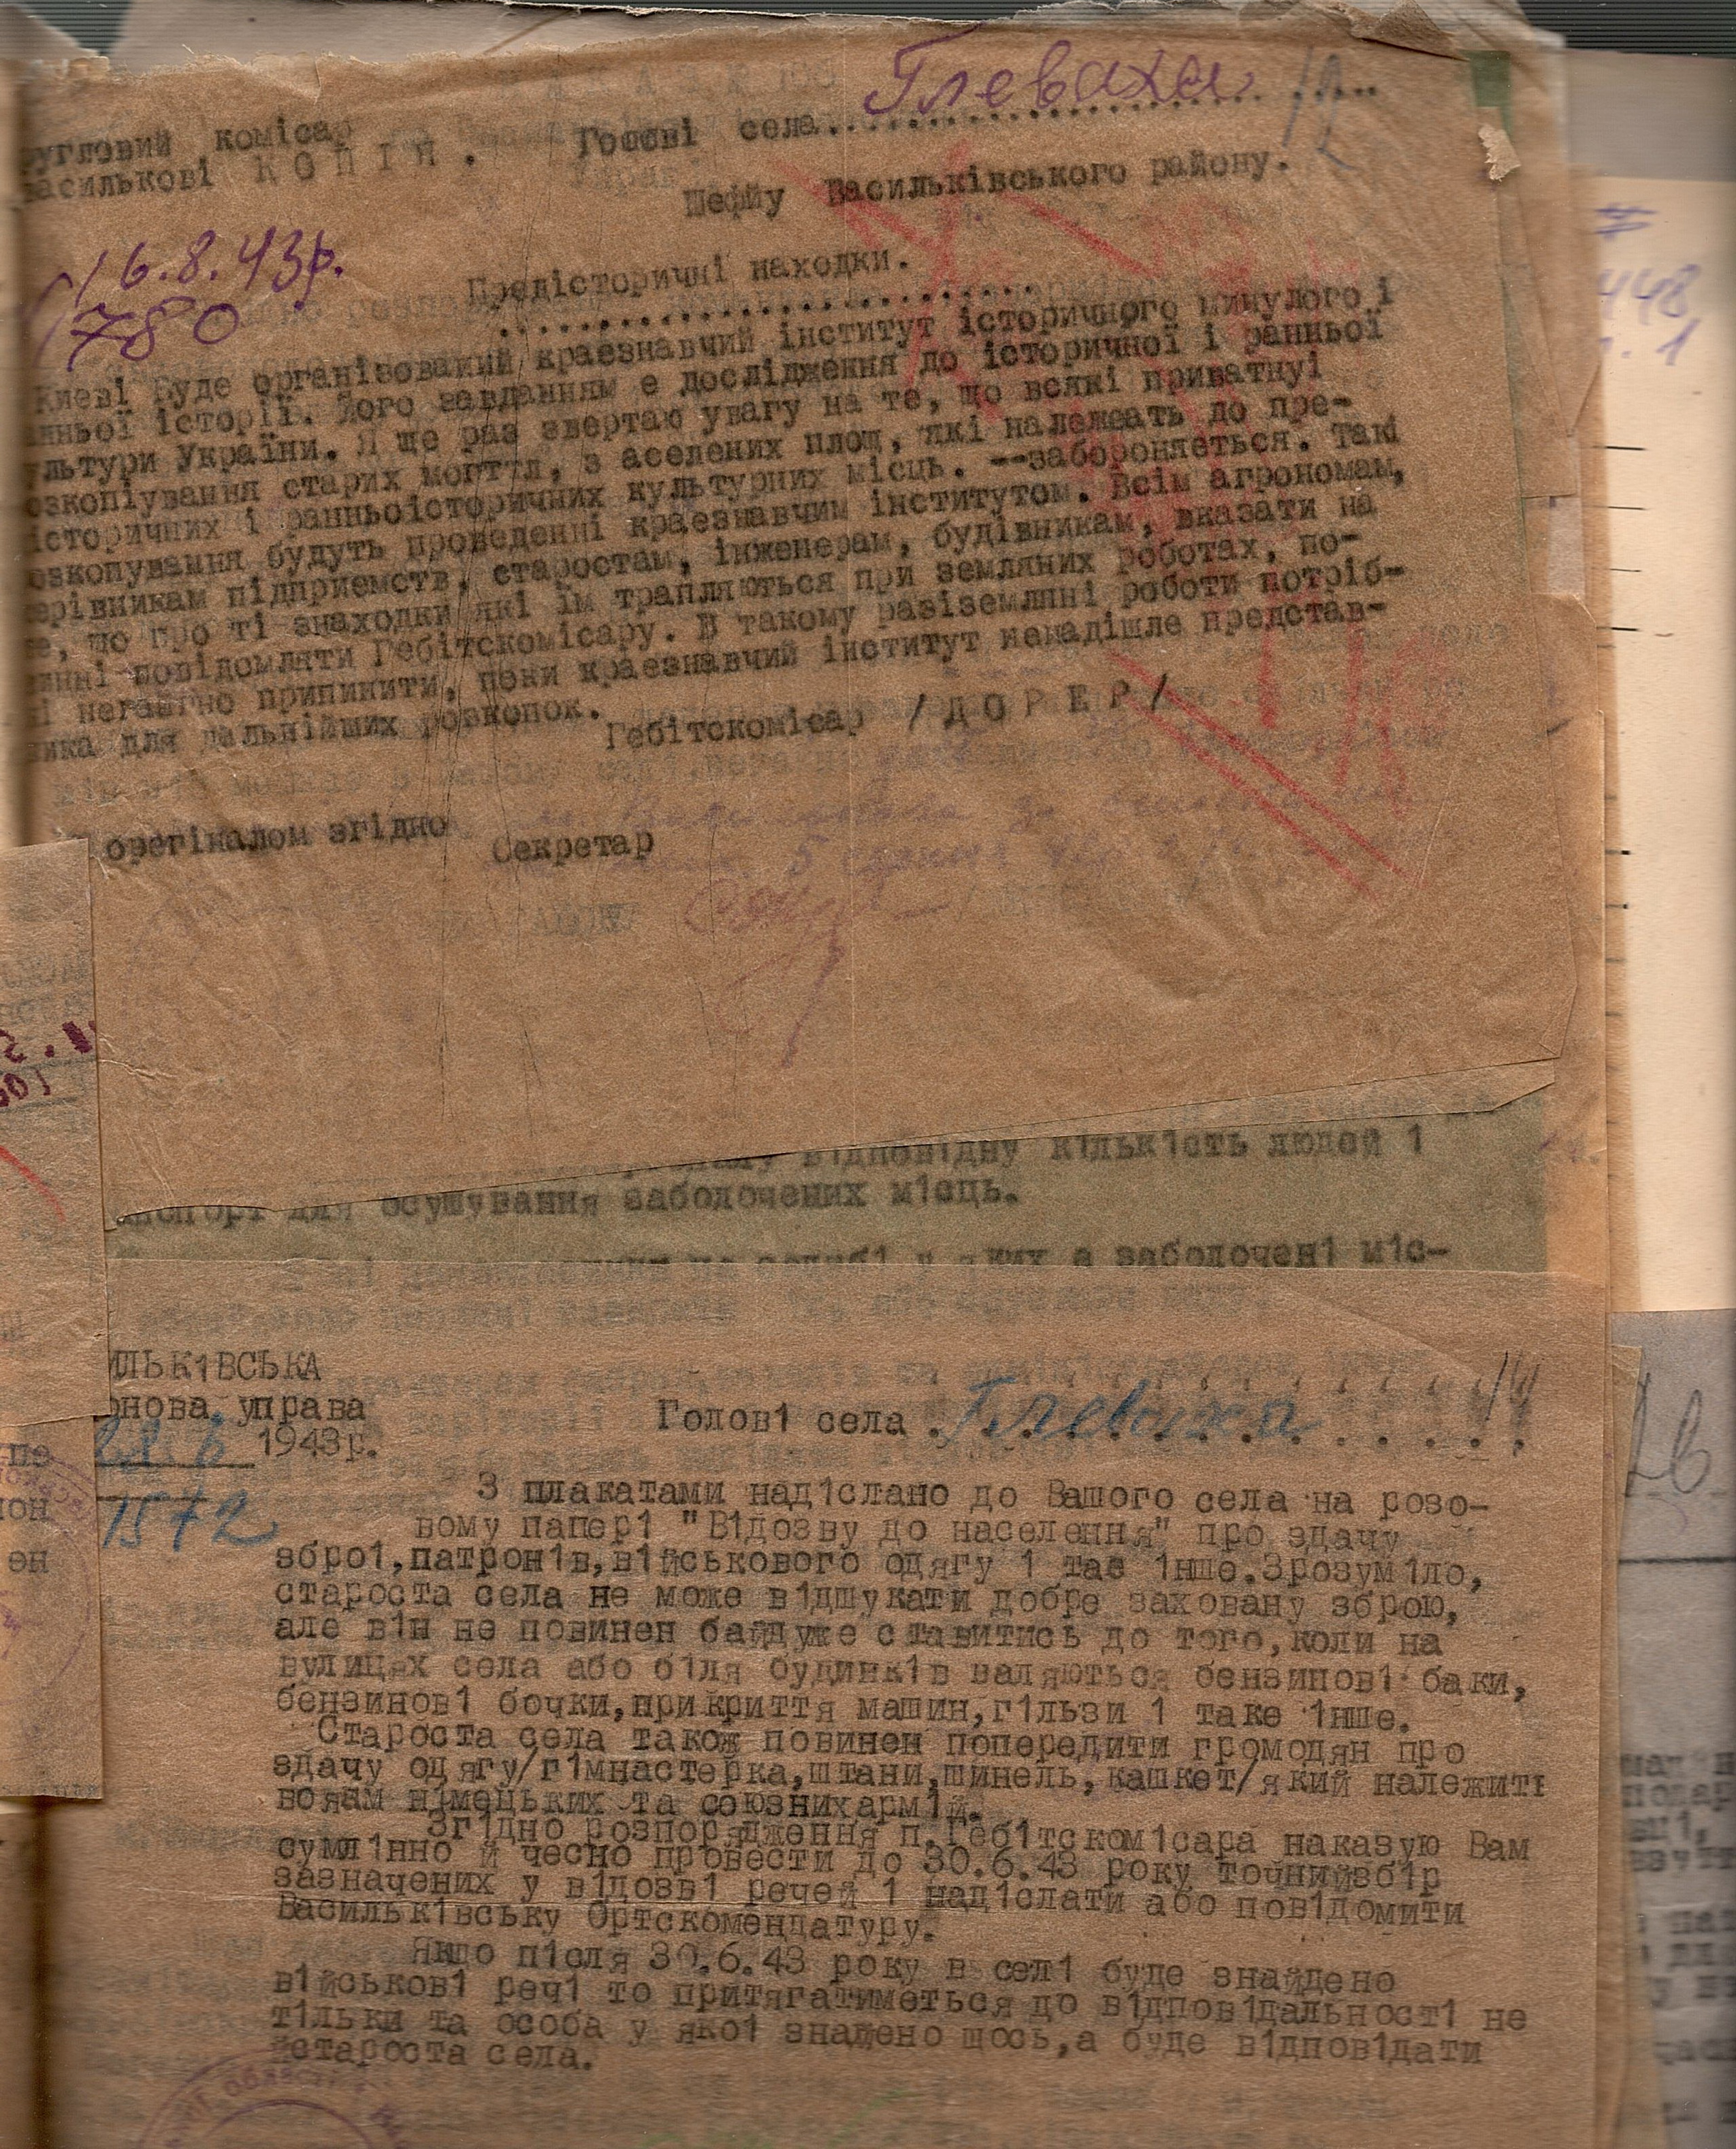 угловий комісар
Василькові КОПІЯ.
Голові села Глеваха 12
Шефйу Васильківського району.
16.8.43р.
780
Предісторичні находки.
Києві буде організований краєзнавчий інститут історичного минулого і
нньої історії. Його завданням є дослідження до історичної і ранньої
ультури України. Я ще раз звертаю увагу на те, що всякі приватнуі
озкопіування старих могття, з аселених площ, які належать до пре-
історичних і ранньоісторичних культурних місць. --забороняеться. Такі
озкопування будуть проведенні краєзнавчим інститутом. Всім агрономам,
ерівникам підприємств, старостам, інженерам, будівникам, вказати на
те, що про ті знаходки які їм трапляються при земляних роботах, по-
инні повідомляти Гебітскомісару. В такому разіземляні роботи потріб-
і негайно припинити, поки краєзнавчий інститут ненадішле представ-
ника для дальнійших розкопок.
Гебітскомісар /ДОРЕР/
орегіналом згідно
Секретар
відповідну к1льк1сть людей 1
для осушування заболочених м1сць.
а заболочен1 м1с-
ильк1вська
онова управа
28 6 1943р.
1572
Голов1 села Глеваха 14
З плакатами над1слано до Вашого села на розо-
вому папер1 "В1дозву до населення" про здачу
збро1,патрон1в,в1йськового одягу 1 тае 1нше.Зрозум1ло,
староста села не може в1дшукати добре заховану зброю,
але в1н не повинен байдуже ставитись до того,коли на
вулицях села або б1ля будинк1в валяються бензинов1 баки,
бензинов1 бочки,прикриття машин,г1льзи 1 таке 1нше.
Староста села також повинен попередити громодян про
здачу одягу/г1мнастерка,штани,шинель,кашкет/який належить
воякам н1мецьких та союзнихарм1й.
Зг1дно розпорядження п.Геб1тском1сара наказую Вам
сумл1нно й чесно провести до 30.6.43 року точнийзб1р
зазначених у в1дозв1 речей 1 над1слати або пов1домити
Васильк1вську Ортскомендатуру.
Якшо п1сля 30.6.43 року в сел1 буде знайдено
в1йськов1 реч1 то притягатиметься до в1дпов1дальност1 не
т1льки та особа у яко1 знадено шось,а буде в1дпов1дати
йстароста села.